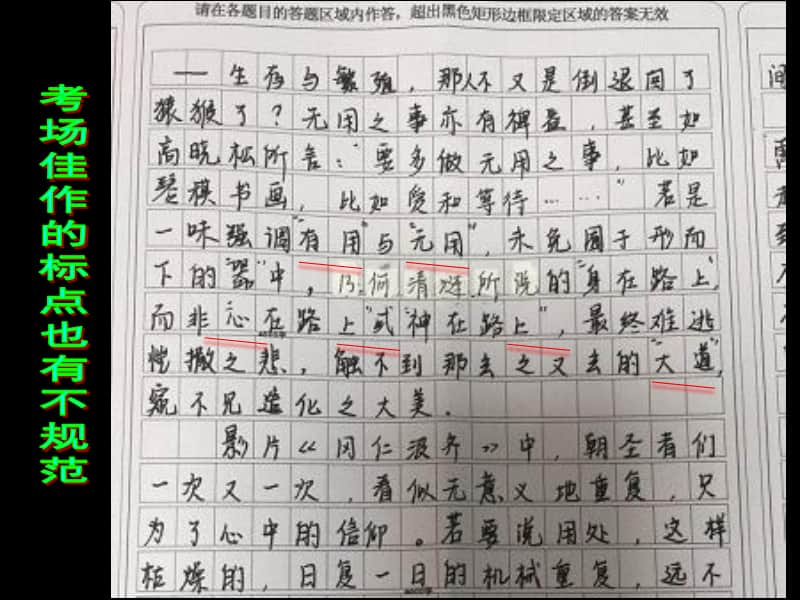 请在各题目的答题区域内作答，超出黑色矩形边框限定区域的答案无效
考场佳作的标点也有不规范
——生存与繁殖，那人不又是倒退回了
猿猴了？无用之事亦有裨益，甚至如
高晓松所言："要多做无用之事，比如
琴棋书画，比如爱和等待……"若是
一味强调"有用"与"无用"，未免囿于形而
下的"器"中，乃何清涟所说的"身在路上，
而非"心在路上"或"神在路上"，最终难逃
性撒之悲，触不到那玄之又玄的"大道"，
窥不见造化之大美.
影片《冈仁波齐》中，朝圣者们
一次又一次，看似无意义地重复，只
为了心中的信仰。若要说用处，这样
枯燥的，日复一日的机械重复，远不